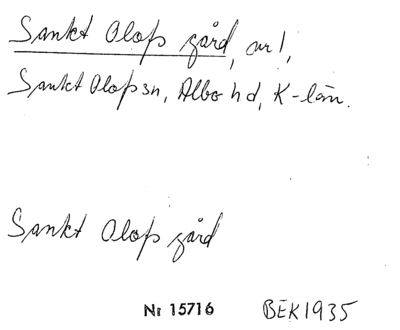 Sankt Olofs gård, nr 1,
Sankt Olofs sn, Albo hd, K-län.
Sankt Olofs gård
Nr 15716 BEK 1935